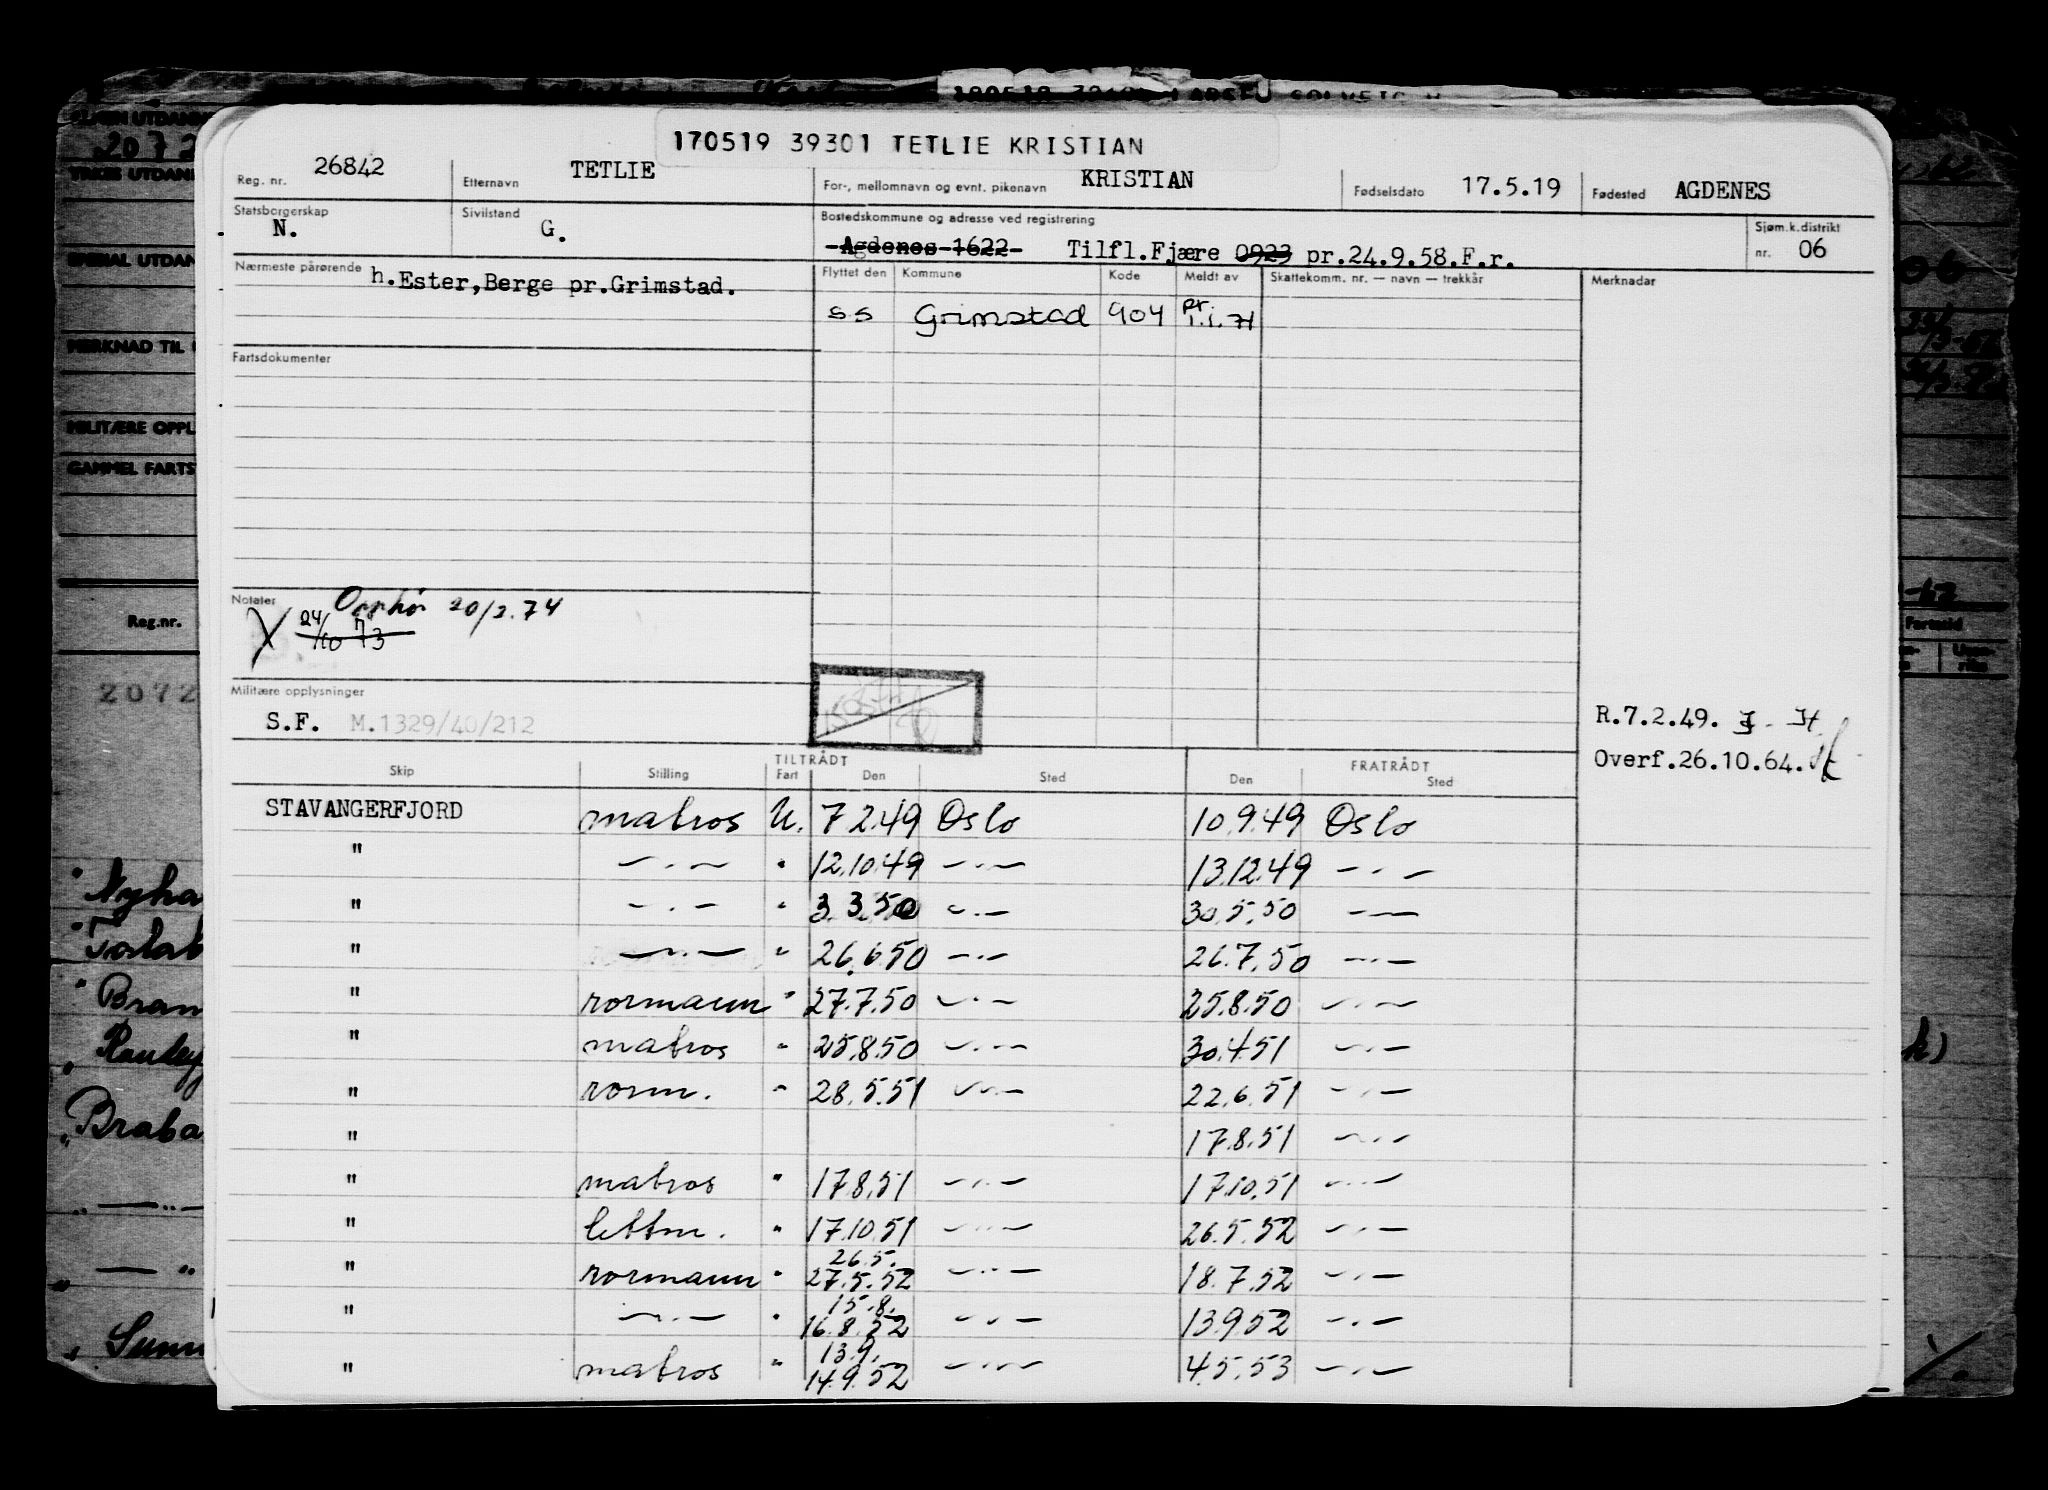 170519 39301 TETLIE KRISTIAN
Reg. nr. 26842 Etternavn TETLIE For-, mellomnavn og evnt. pikenavn KRISTIAN Fødselsdato 17.5.19 Fødested AGDENES
Statsborgerskap N. Sivilstand G. Bostedskommune og adresse ved registrering Sjøm.k.distrikt
Agdenes 1622 Tilfl.Fjære 0923 pr.24.9.58.F.r. nr. 06
Nærmeste pårørende h.Ester,Berge pr.Grimstad. Flyttet den Kommune Kode Meldt av Skattekomm. nr. — navn — trekkår Merknadar
ss Grimstad 904 pr. 1.1.71
Fartsdokumenter
Notater Opphør 20/3.74
24/10 73
Militære opplysninger
S.F. M.1329/40/212
R.7.2.49.
Overf.26.10.64.
TILTRÅDT FRATRÅDT
Skip Stilling Fart Den Sted Den Sted
STAVANGERFJORD matros U. 7.2.49 Oslo 10.9.49 Oslo
" —.— " 12.10.49 —.— 13.12.49 —.—
" —.— " 3.3.50 —.— 30.5.50 —.—
" —.— " 26.6.50 —.— 26.7.50 —.—
" rormann " 27.7.50 —.— 25.8.50 —.—
" matros " 25.8.50 —.— 30.4.51 —.—
" rorm. " 28.5.51 —.— 22.6.51 —.—
" 17.8.51 —.—
" matros " 17.8.51 —.— 17.10.51 —.—
" lettm. " 17.10.51 —.— 26.5.52 —.—
26.5.
" rormann " 27.5.52 —.— 18.7.52 —.—
15.8.
" —.— " 16.8.52 —.— 13.9.52 —.—
13.9.
" matros " 14.9.52 —.— 4.5.53 —.—
20 7 2
MERKNAD TIL
GAMMEL FARTS
Reg.nr.
2072